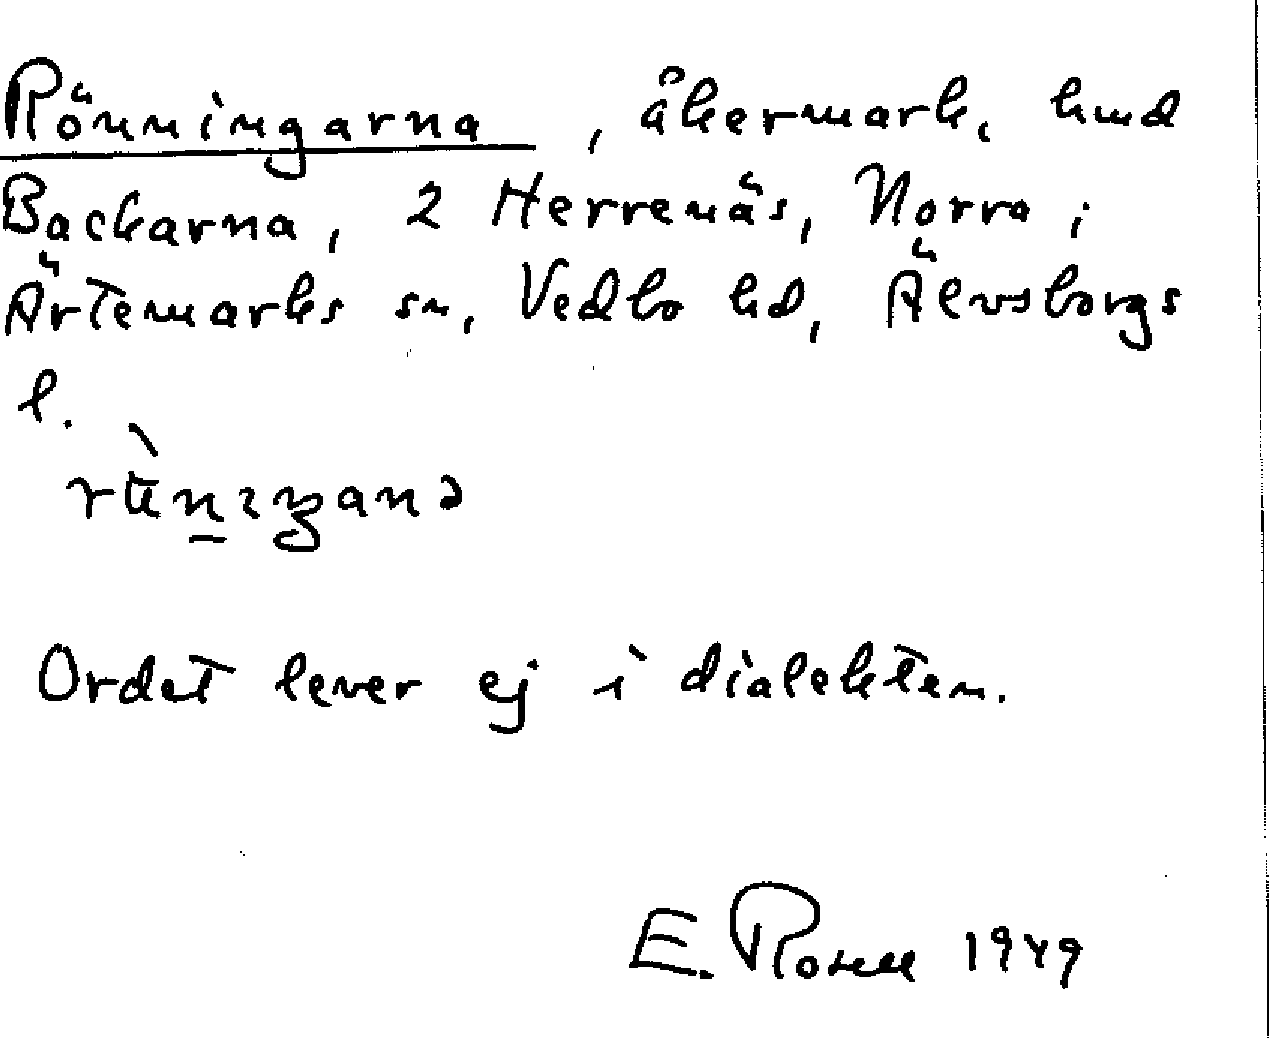 Rönningarna, åkermark, hmd
Backarna, 2 Herrenäs, Norra i
Ärtemarks sn, Vedbo hd, Älvsborgs
l.
Ordet lever ej i dialekten.
E. Rosell 1949